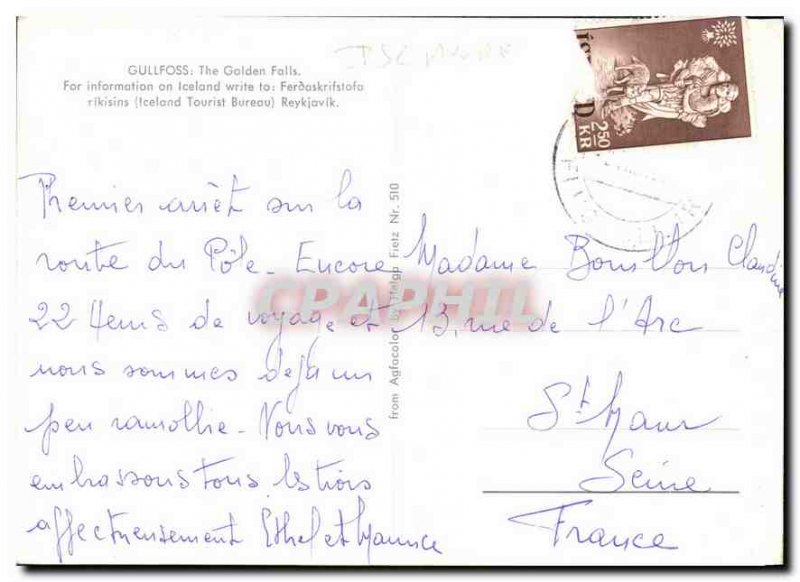 GULLFOSS: The Golden Falls.
For information on Iceland write to: Ferðaskrifstofa
ríkisins (Iceland Tourist Bureau) Reykjavík.
2.50
KR
Premier arrêt sur la
route du Pôle - Encore
22 Hens de voyage et
nous sommes déjà un
peu ramollie - Nous vous
embrassons tous les trois
affectueusement Ethel et Maurice
from Agfacolor by Helga Fietz Nr. 510
Madame Bouillon Claudine
13, rue de l'Arc
St Maur
Seine
France
CPAPHIL